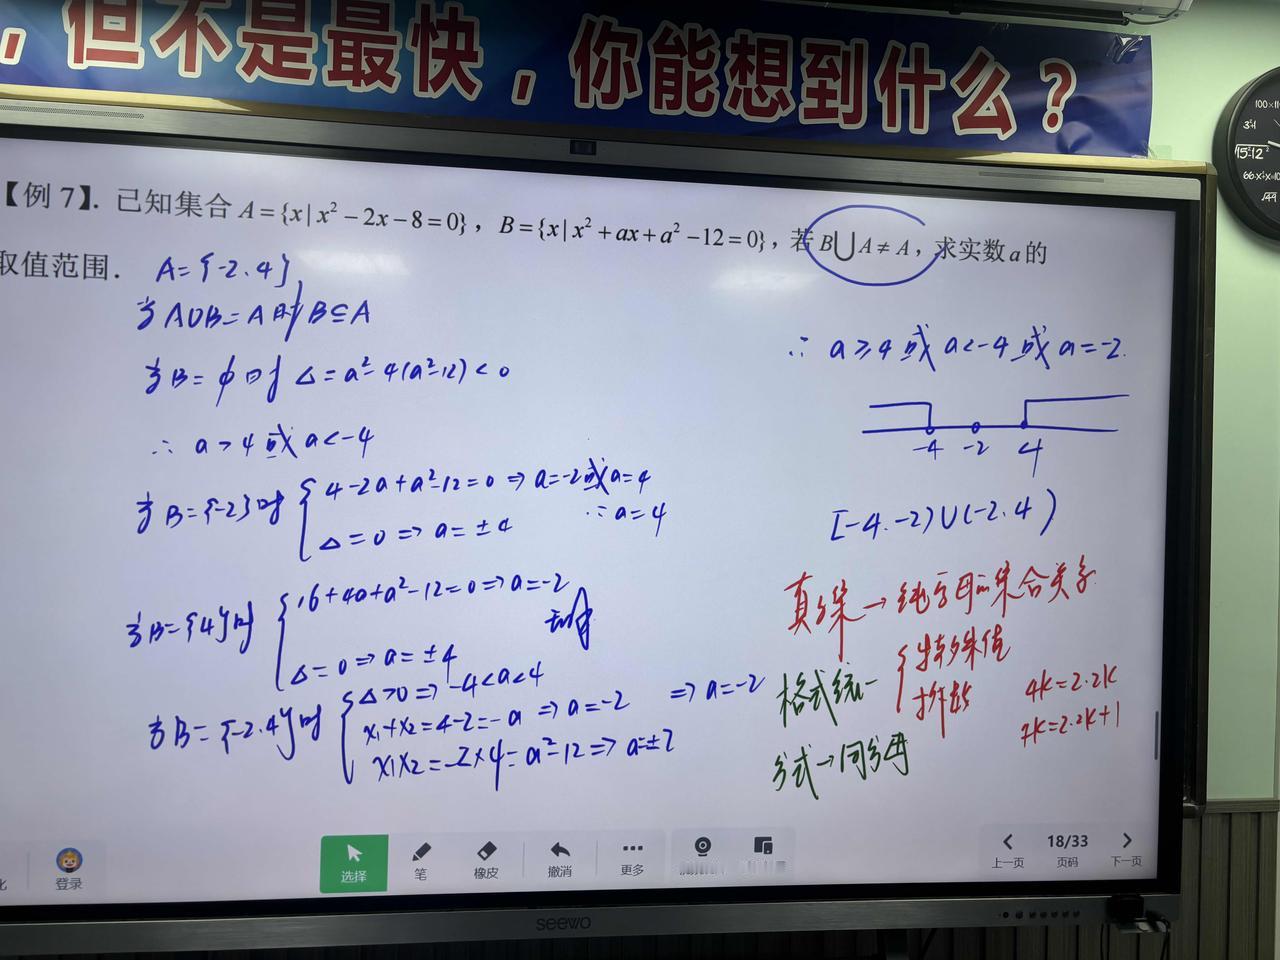 ，但不是最快，你能想到什么？
【例 7】. 已知集合 A={x|x²-2x-8=0}，B={x|x²+ax+a²-12=0}，若 B⋃A≠A，求实数 a 的
取值范围．
A={-2.4}
当A∪B=A时B⊆A
当B=∅时 △=a²-4(a²-12)<0
∴ a>4或a<-4
当B={-2}时 { 4-2a+a²-12=0 ⇒ a=-2或a=4
△=0 ⇒ a=±4
∴a=4
当B={4}时 { 16+4a+a²-12=0 ⇒ a=-2
△=0 ⇒ a=±4
无解
当B={-2.4}时 { △>0 ⇒ -4<a<4
x₁+x₂=4-2=-a ⇒ a=-2
x₁x₂=-2×4=a²-12 ⇒ a=±2
⇒ a=-2
∴ a≥4或a<-4或a=-2.
-4 -2 4
[-4.-2)∪(-2.4)
真子集→纯字母的集合关系
格式统一 { 特殊值
4k=2·2k
分式→同分母
登录
选择
笔
橡皮
撤消
更多
上一页
18/33
页码
下一页
seewo
100×11
3²+1
√15-12²
66·x÷x=10
√49